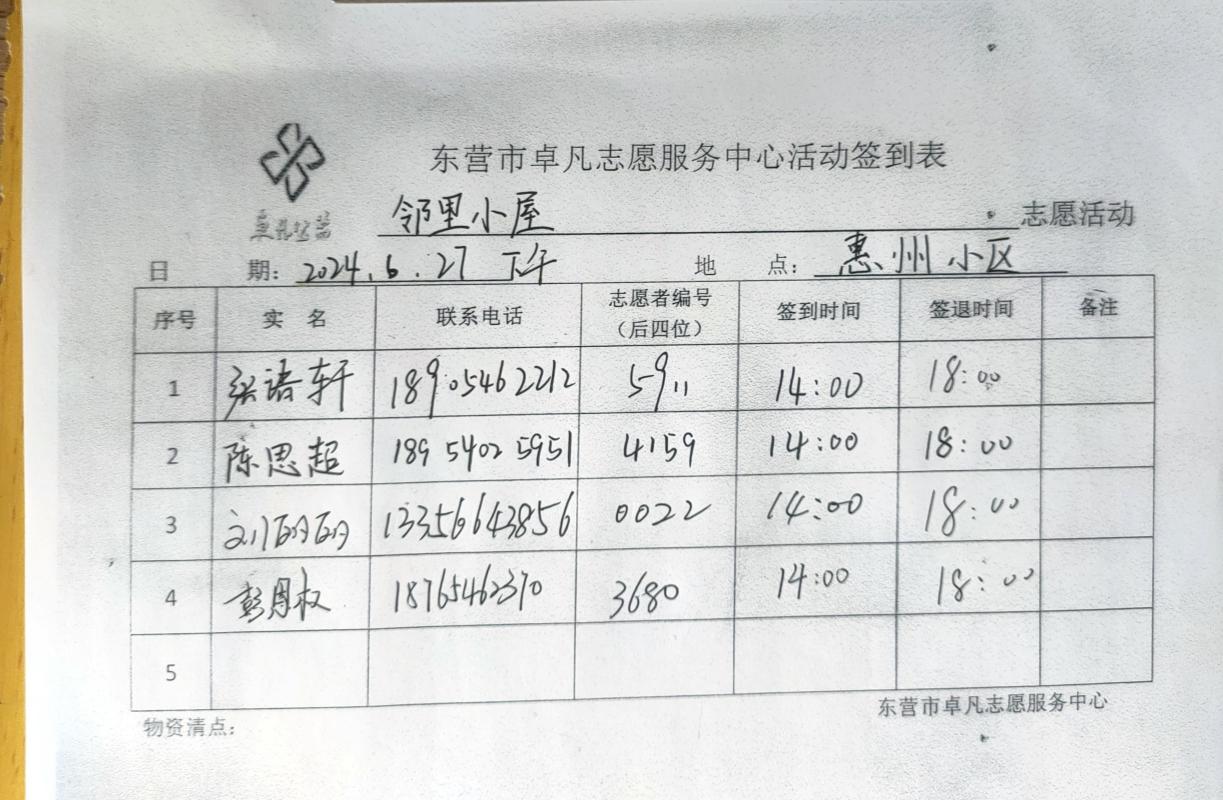 东营市卓凡志愿服务中心活动签到表
邻里小屋 志愿活动
日 期：2024.6.27 下午 地 点：惠州小区
序号 实 名 联系电话 志愿者编号（后四位） 签到时间 签退时间 备注
1 张诸轩 18905462212 5911 14:00 18:00
2 陈思超 189 5402 5951 4159 14:00 18:00
3 刘的的 13356643856 0022 14:00 18:00
4 彭周权 18765462370 3680 14:00 18:00
5
物资清点： 东营市卓凡志愿服务中心